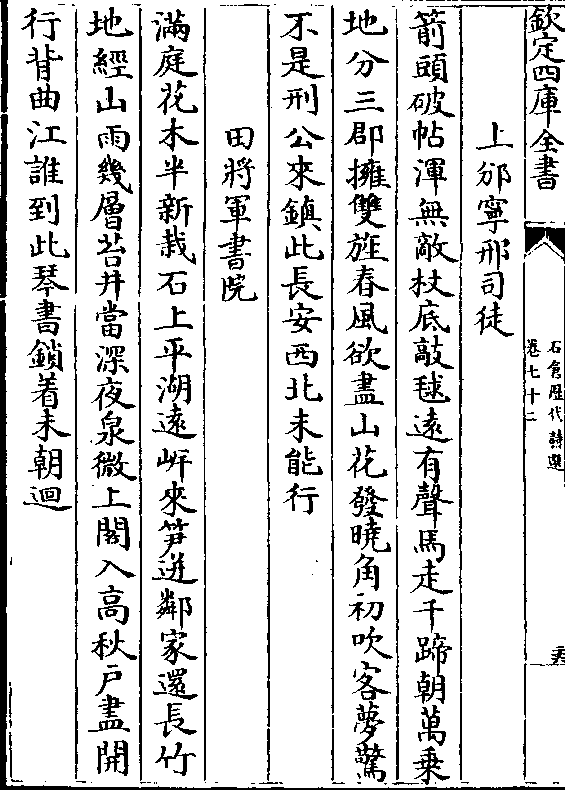 欽定四庫全書
石倉歷代詩選
卷七十二
上邠寧邢司徒
箭頭破帖渾無敵杖底敲毬遠有聲馬走千蹄朝萬乗
地分三郡擁雙旌春風欲盡山花發曉角初吹客夢驚
不是刑公來鎮此長安西北未能行
田將軍書院
滿庭花木半新栽石上平湖遠㟁來笋迸鄰家還長竹
地經山雨幾層苔井當深夜泉微上閣入高秋戸盡開
行背曲江誰到此琴書鎖着未朝迴